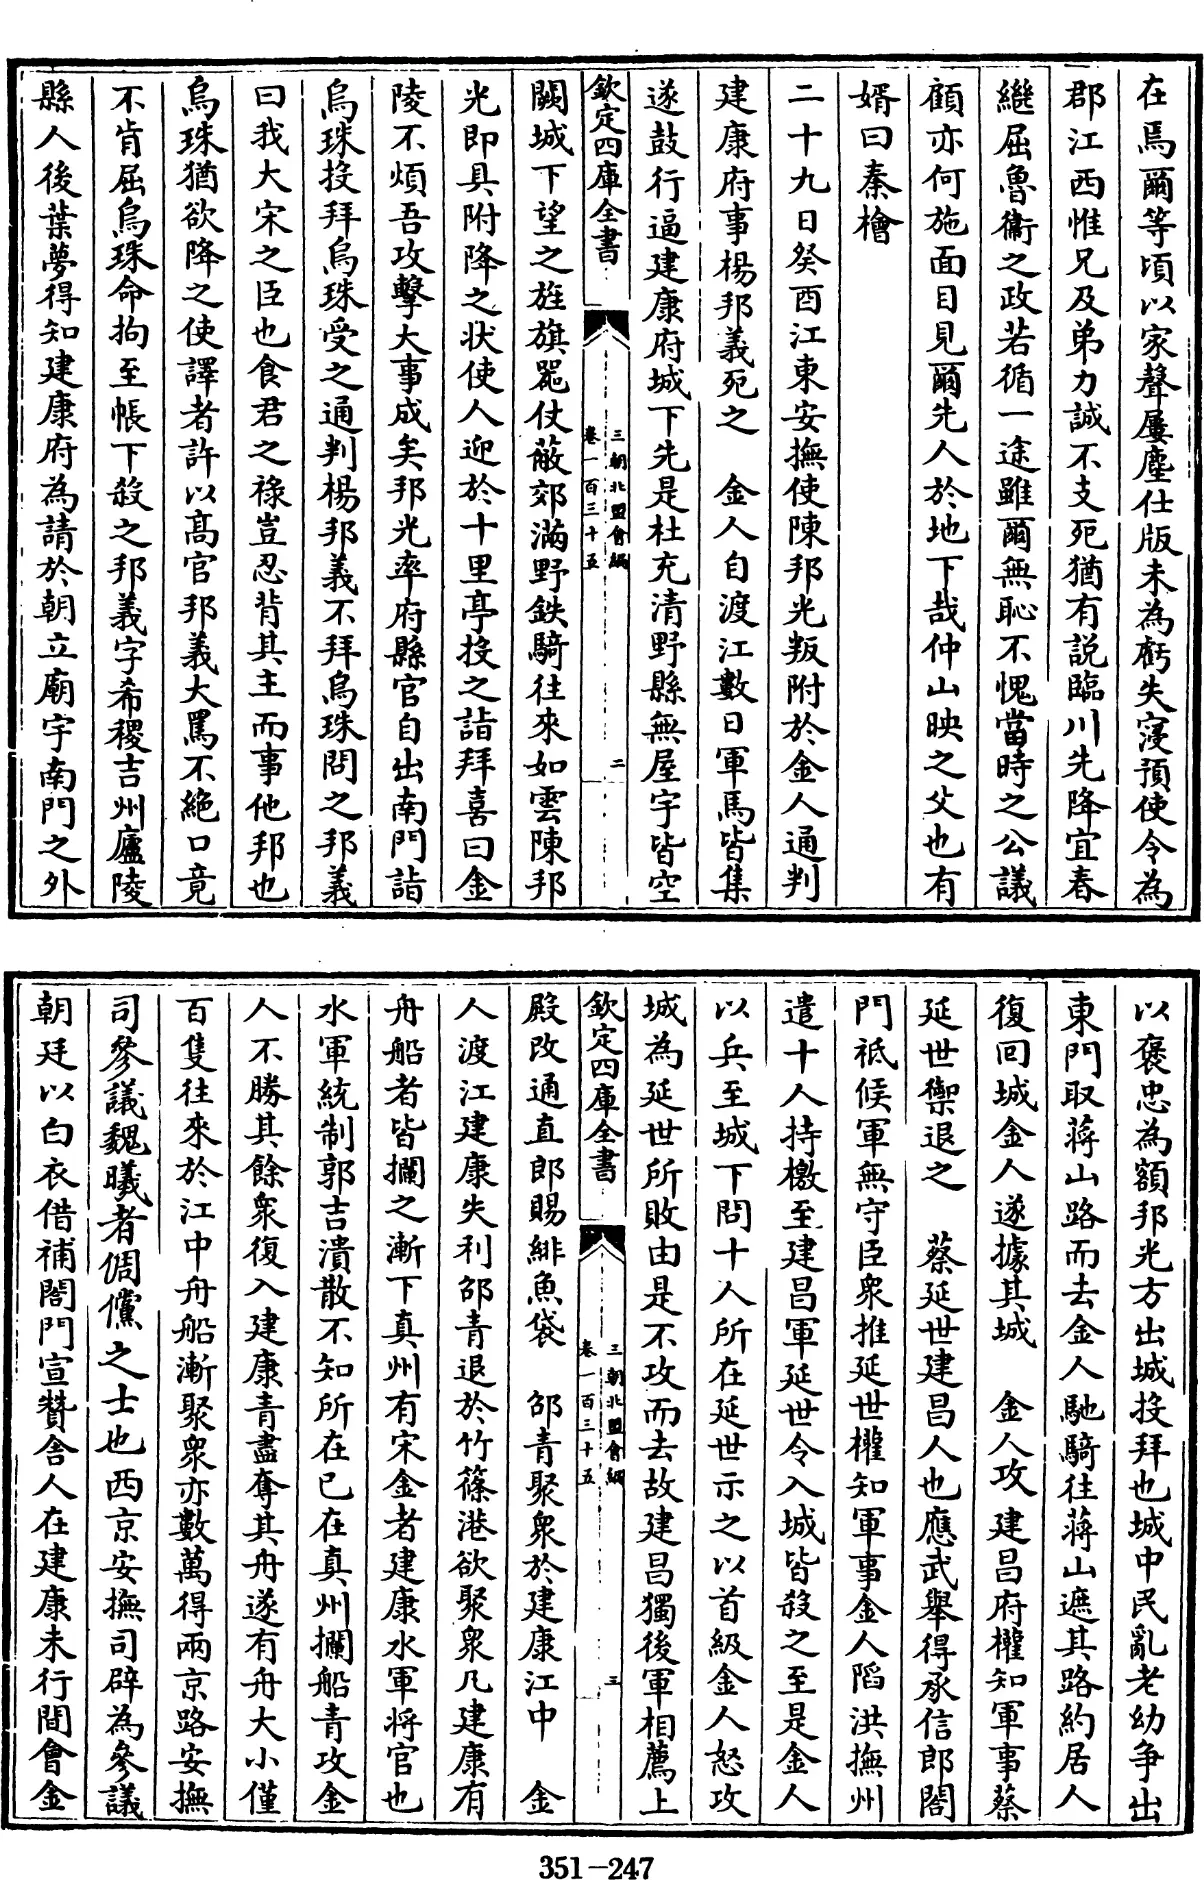 在焉爾等頃以家聲屢塵仕版未為虧失寖預使令為
郡江西惟兄及弟力誠不支死猶有説臨川先降宜春
繼屈魯衞之政若循一途雖爾無恥不愧當時之公議
顧亦何施面目見爾先人於地下哉仲山映之父也有
婿曰秦檜
二十九日癸酉江東安撫使陳邦光叛附於金人通判
建康府事楊邦義死之　金人自渡江數日軍馬皆集
遂鼓行逼建康府城下先是杜充清野縣無屋宇皆空
欽定四庫全書
三朝北盟會編
卷一百三十五
二
闕城下望之旌旗器仗蔽郊滿野鉄騎往來如雲陳邦
光即具附降之狀使人迎於十里亭投之詣拜喜曰金
陵不煩吾攻擊大事成矣邦光率府縣官自出南門詣
烏珠投拜烏珠受之通判楊邦義不拜烏珠問之邦義
曰我大宋之臣也食君之祿豈忍背其主而事他邦也
烏珠猶欲降之使譯者許以髙官邦義大罵不絶口竟
不肯屈烏珠命拘至帳下殺之邦義字希稷吉州廬陵
縣人後葉夢得知建康府為請於朝立廟宇南門之外
以褒忠為額邦光方出城投拜也城中民亂老幼争出
東門取蔣山路而去金人馳騎往蔣山遮其路約居人
復回城金人遂據其城　金人攻建昌府權知軍事蔡
延世禦退之　蔡延世建昌人也應武舉得承信郎閤
門祗候軍無守臣衆推延世權知軍事金人陷洪撫州
遣十人持檄至建昌軍延世令入城皆殺之至是金人
以兵至城下問十人所在延世示之以首級金人怒攻
城為延世所敗由是不攻而去故建昌獨後軍相薦上
欽定四庫全書
三朝北盟會編
卷一百三十五
三
殿改通直郎賜緋魚袋　邵青聚衆於建康江中　金
人渡江建康失利邵青退於竹篠港欲聚衆凡建康有
舟船者皆攔之漸下真州有宋金者建康水軍將官也
水軍統制郭吉潰散不知所在已在真州攔船青攻金
人不勝其餘衆復入建康青盡奪其舟遂有舟大小僅
百隻往來於江中舟船漸聚衆亦數萬得兩京路安撫
司參議魏曦者倜儻之士也西京安撫司辟為參議
朝廷以白衣借補閤門宣贊舍人在建康未行間會金
351-247